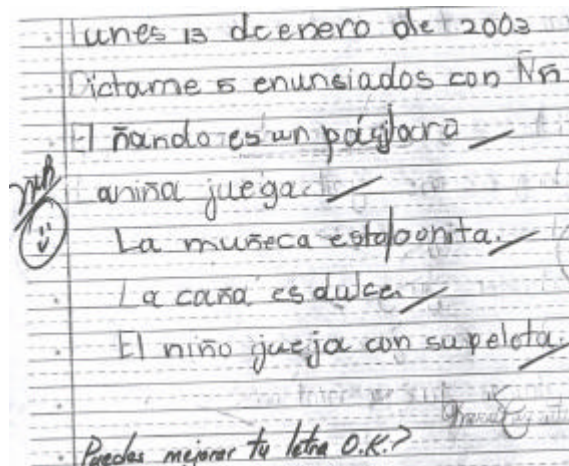 Lunes 13 de enero de 2003
Dictame 5 enunsiados con Ññ
El ñando es un pagjaro
La niña juega.
La muñeca esta boonita.
La caña es dulce.
El niño jueja con su pelota.
Puedes mejorar tu letra O.K.?